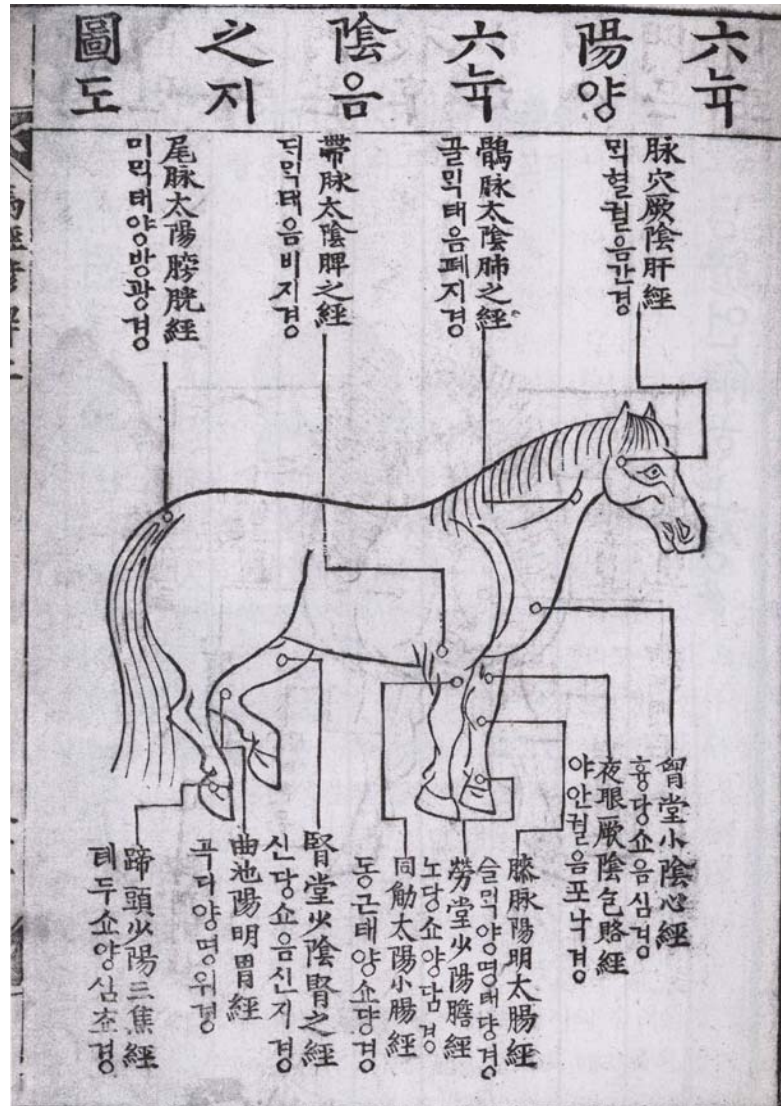 六륙陽양六륙陰음之지圖도
脉穴厥陰肝經
ᄆᆡᆨ혈궐음간경
鶻脉太陰肺之經
골ᄆᆡᆨ태음폐지경
帶脉太陰脾之經
ᄃᆡᄆᆡᆨ태음비지경
尾脉太陽膀胱經
미ᄆᆡᆨ태양방광경
胷堂小陰心經
흉당쇼음심경
夜眼厥陰包胳經
야안궐음포낙경
膝脉陽明太腸經
슬ᄆᆡᆨ양명태댱경
勞堂少陽膽經
노당쇼양담경
同觔太陽小腸經
동근태양쇼댱경
腎堂少陰腎之經
신당쇼음신지경
曲池陽明胃經
곡디양명위경
蹄頭少陽三焦經
톄두쇼양삼쵸경